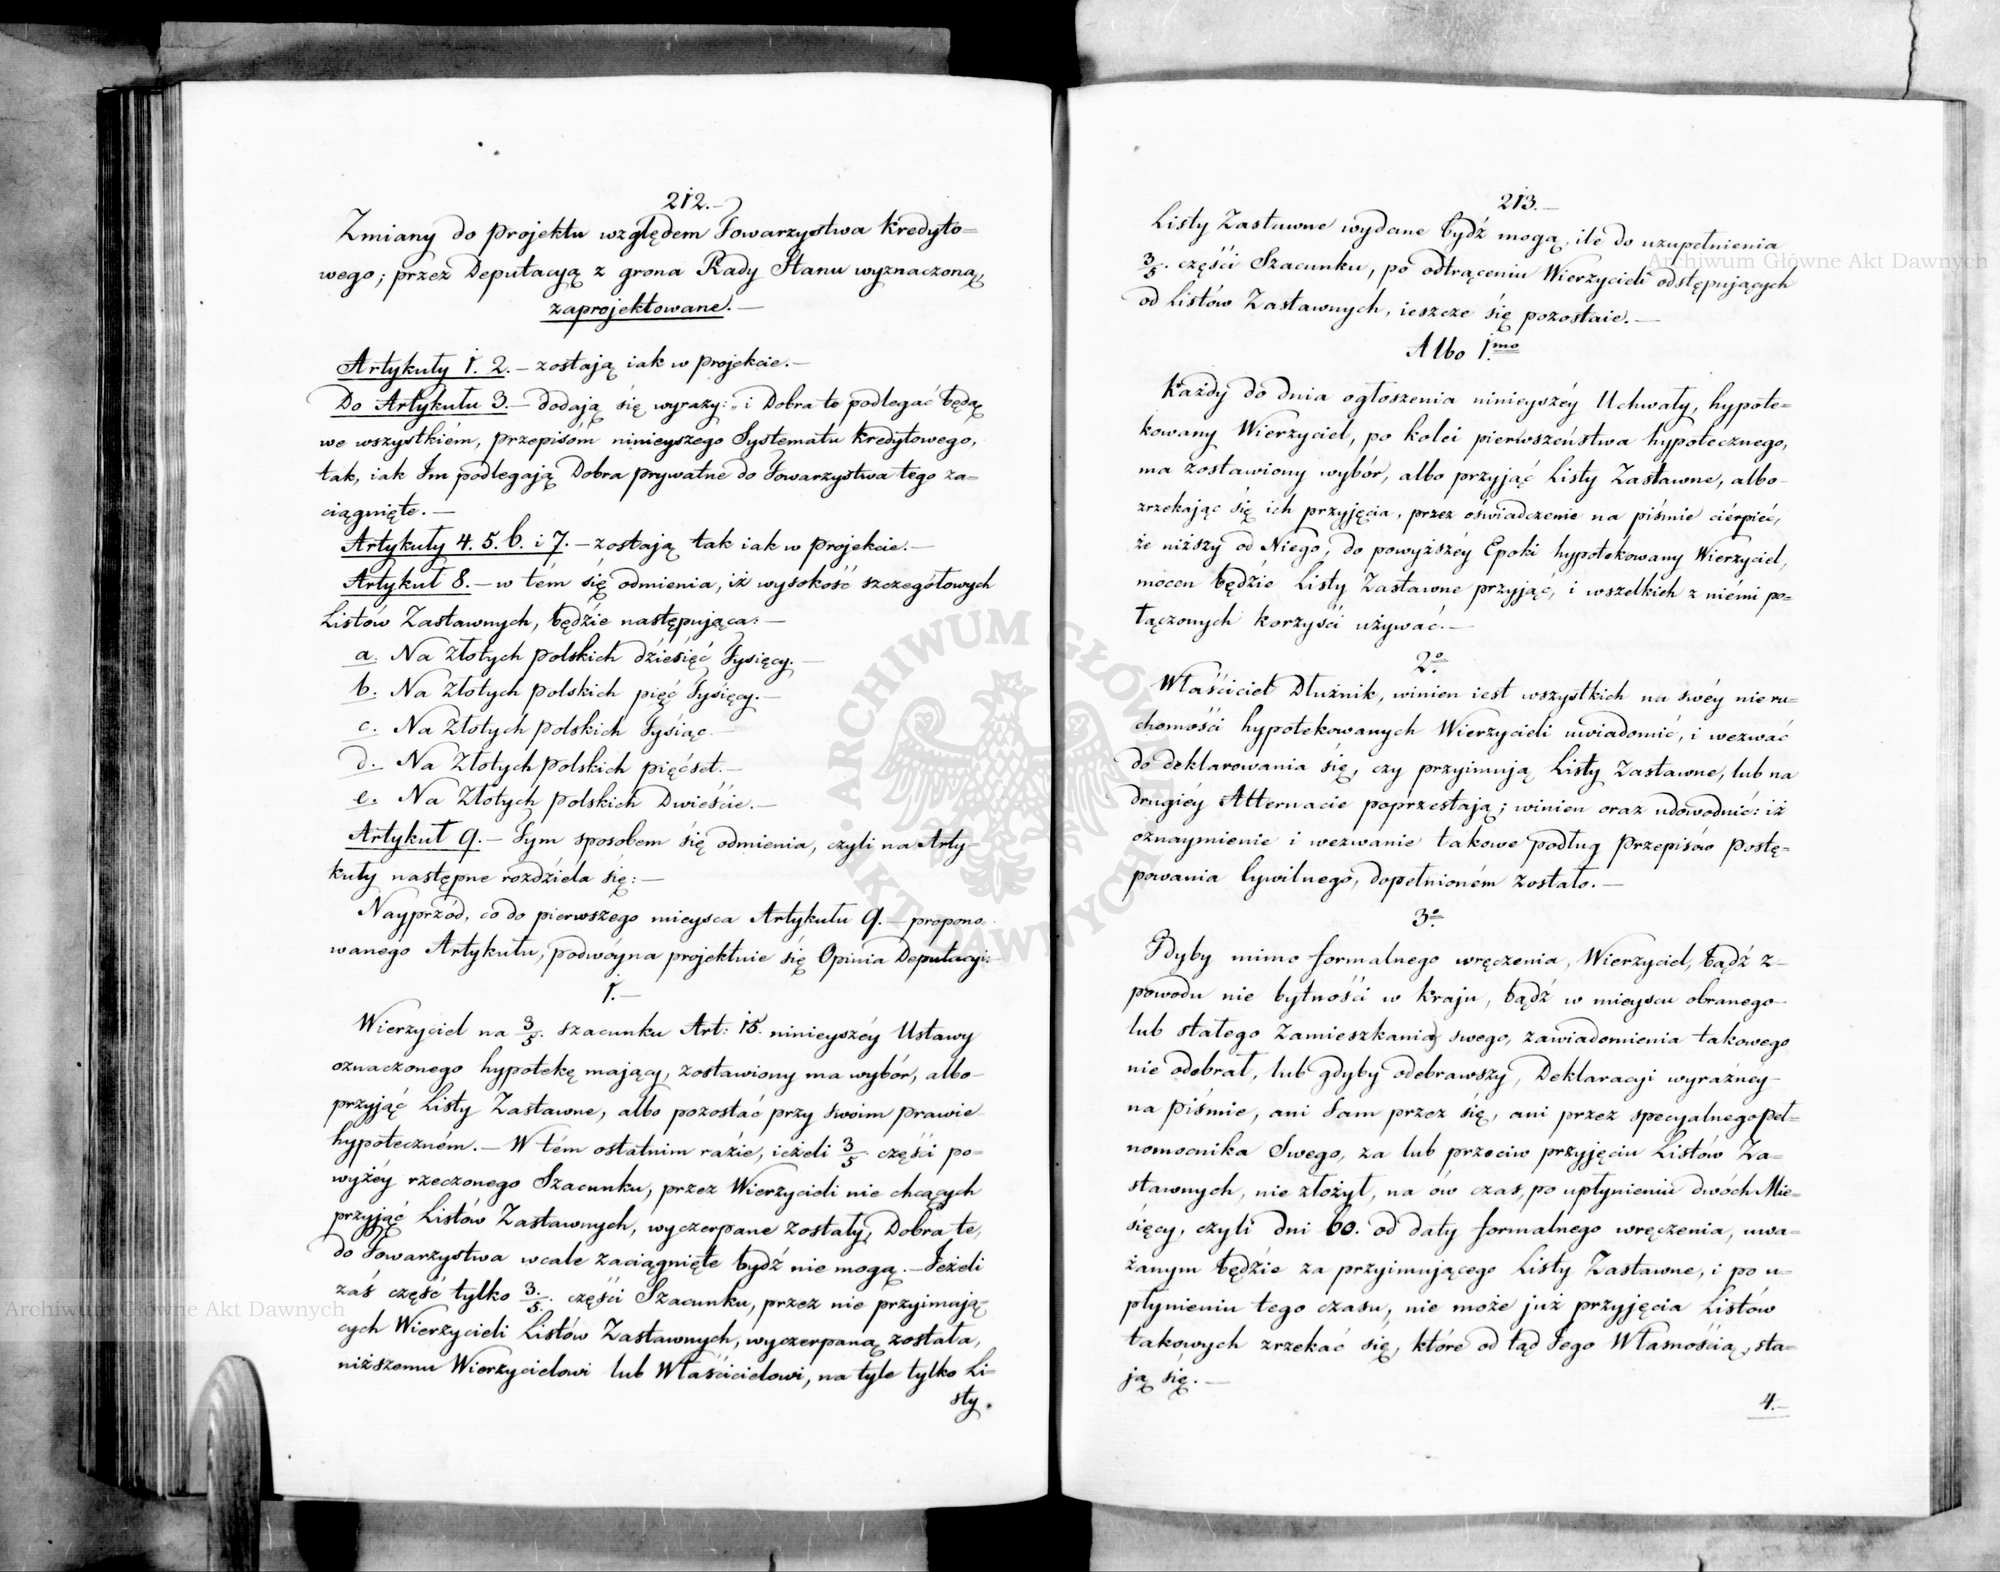 212.
Zmiany do projektu względem Towarzystwa Kredyto=
wego; przez Deputacyą z grona Rady Stanu wyznaczoną,
zaprojektowane.—
Artykuły 1. 2.— zostaią iak w projekcie.—
Do Artykułu 3.— dodają się wyrazy: „i Dobra te podlegać będą
we wszystkiém, przepisóm ninieyszego Systematu kredytowego,
tak, iak Im podlegają Dobra prywatne do Towarzystwa tego za=
ciągnięte.—
Artykuły 4. 5. 6. i 7.— zostają tak iak w projekcie.—
Artykuł 8.— w tém się odmienia, iż wysokość szczegółowych
Listów Zastawnych, będzie następująca:—
a. Na Złotych polskich dziesięć Tysięcy.—
b. Na Złotych polskich pięć Tysięcy.—
c. Na Złotych polskich Tysiąc.—
d. Na Złotych polskich pięćset.—
e. Na Złotych polskich Dwieście.—
Artykuł 9.— Tym sposobem się odmienia, czyli na Arty=
kuły następne rozdziela się:—
Nayprzód, co do pierwszego mieysca Artykułu 9.— propono
wanego Artykułu, podwóyna projektuie się Opinia Deputacyi:
1.—
Wierzyciel na 3/5. szacunku Art: 15. ninieyszéy Ustawy
oznaczonego hypotekę mający, zostawiony ma wybór, albo
przyjąć Listy Zastawne, albo pozostać przy swoim prawie
hypoteczném.— W tém ostatnim razie, ieżeli 3/5 części po=
wyżéy rzeczonego Szacunku, przez Wierzycieli nie chcących
przyjąć Listów Zastawnych, wyczerpane zostały, Dobra te,
do Towarzystwa wcale zaciągnięte bydź nie mogą.— Ieżeli
zaś część tylko 3/5. części Szacunku, przez nie przyimają=
cych Wierzycieli Listów Zastawnych, wyczerpaną została,
niższemu Wierzycielowi lub Właścicielowi, na tyle tylko Li=
sty.
213.—
Listy Zastawne wydane bydź mogą, ile do uzupełnienia
3/5. części Szacunku, po odtrąceniu Wierzycieli odstępujących
od Listów Zastawnych, ieszcze się pozostaie.—
Albo 1.mo
Każdy do dnia ogłoszenia ninieyszéy Uchwały, hypote=
kowany Wierzyciel, po kolei pierwszeństwa hypotecznego,
ma zostawiony wybór, albo przyjąć Listy Zastawne, albo
zrzekając się ich przyjęcia, przez oświadczenie na piśmie cierpieć,
że niższy od Niego, do powyższéy Epoki hypotekowany Wierzyciel,
mocen będzie Listy Zastawne przyjąć, i wszelkich z niémi po=
łączonych korzyści używać.—
2o.
Właściciel Dłużnik, winien iest wszystkich na swéy nieru=
chomości hypotekowanych Wierzycieli uwiadomić, i wezwać
do deklarowania się, czy przyimują Listy Zastawne, lub na
drugiéy Alternacie poprzestają; winien oraz udowodnić: iż
oznaymienie i wezwanie takowe podług Przepisów Postę=
powania Cywilnego, dopełnioném zostało.—
3o.
Gdyby mimo formalnego wręczenia, Wierzyciel, bądź z
powodu nie bytności w Kraju, bądź w mieyscu obranego
lub stałego Zamieszkania swego, zawiadomienia takowego
nie odebrał, lub gdyby odebrawszy, Deklaracyi wyraźnéy
na piśmie, ani Sam przez się, ani przez specyalnego peł=
nomocnika Swego, za lub przeciw przyjęciu Listów Za=
stawnych, nie złożył, na ów czas, po upłynieniu dwóch Mie=
sięcy, czyli dni 60. od daty formalnego wręczenia, uwa=
żanym będzie za przyimującego Listy Zastawne, i po u=
płynieniu tego czasu, nie może już przyjęcia Listów
takowych zrzekać się, które od tąd Iego Własnością, sta=
ją się.—
4.—
Archiwum Główne Akt Dawnych
Archiwum Główne Akt Dawnych
ARCHIWUM GŁÓWNE AKT DAWNYCH